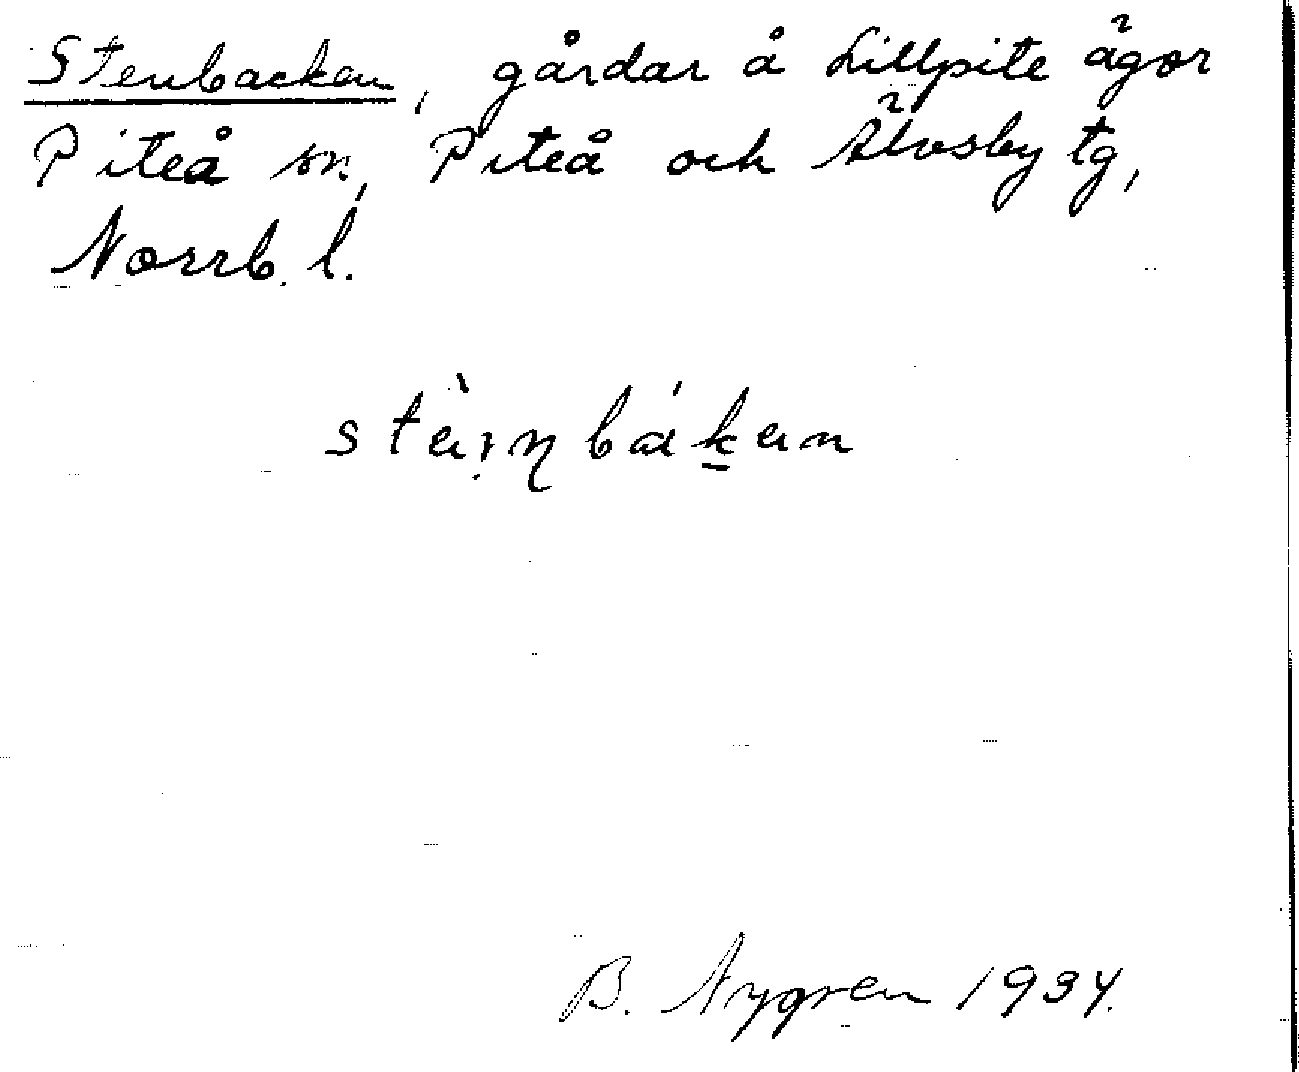 Stenbacken, gårdar å Lillpite ägor
Piteå sn, Piteå och Älvsby tg,
Norrb. l.
B. Nygren 1934.